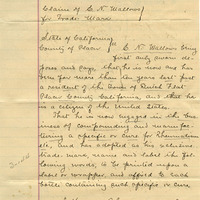 Claim of C. N. Wallows
for Trade Mark
State of California
County of Placer C. N. Wallows being
first duly sworn de-
poses and says, that he is now and has
been for more than ten years last past
a resident of the town of Dutch Flat
Placer County California, and that he
is a citizen of the United States.
That he is now engaged in the
business of compounding and manufac-
turing a specific or cure for Rheumatism
etc, and has adopted as his exclusive
trade mark name and label the fol-
lowing words, to be printed upon a
label or wrapper, and affixed to each
bottle containing such specific or cure